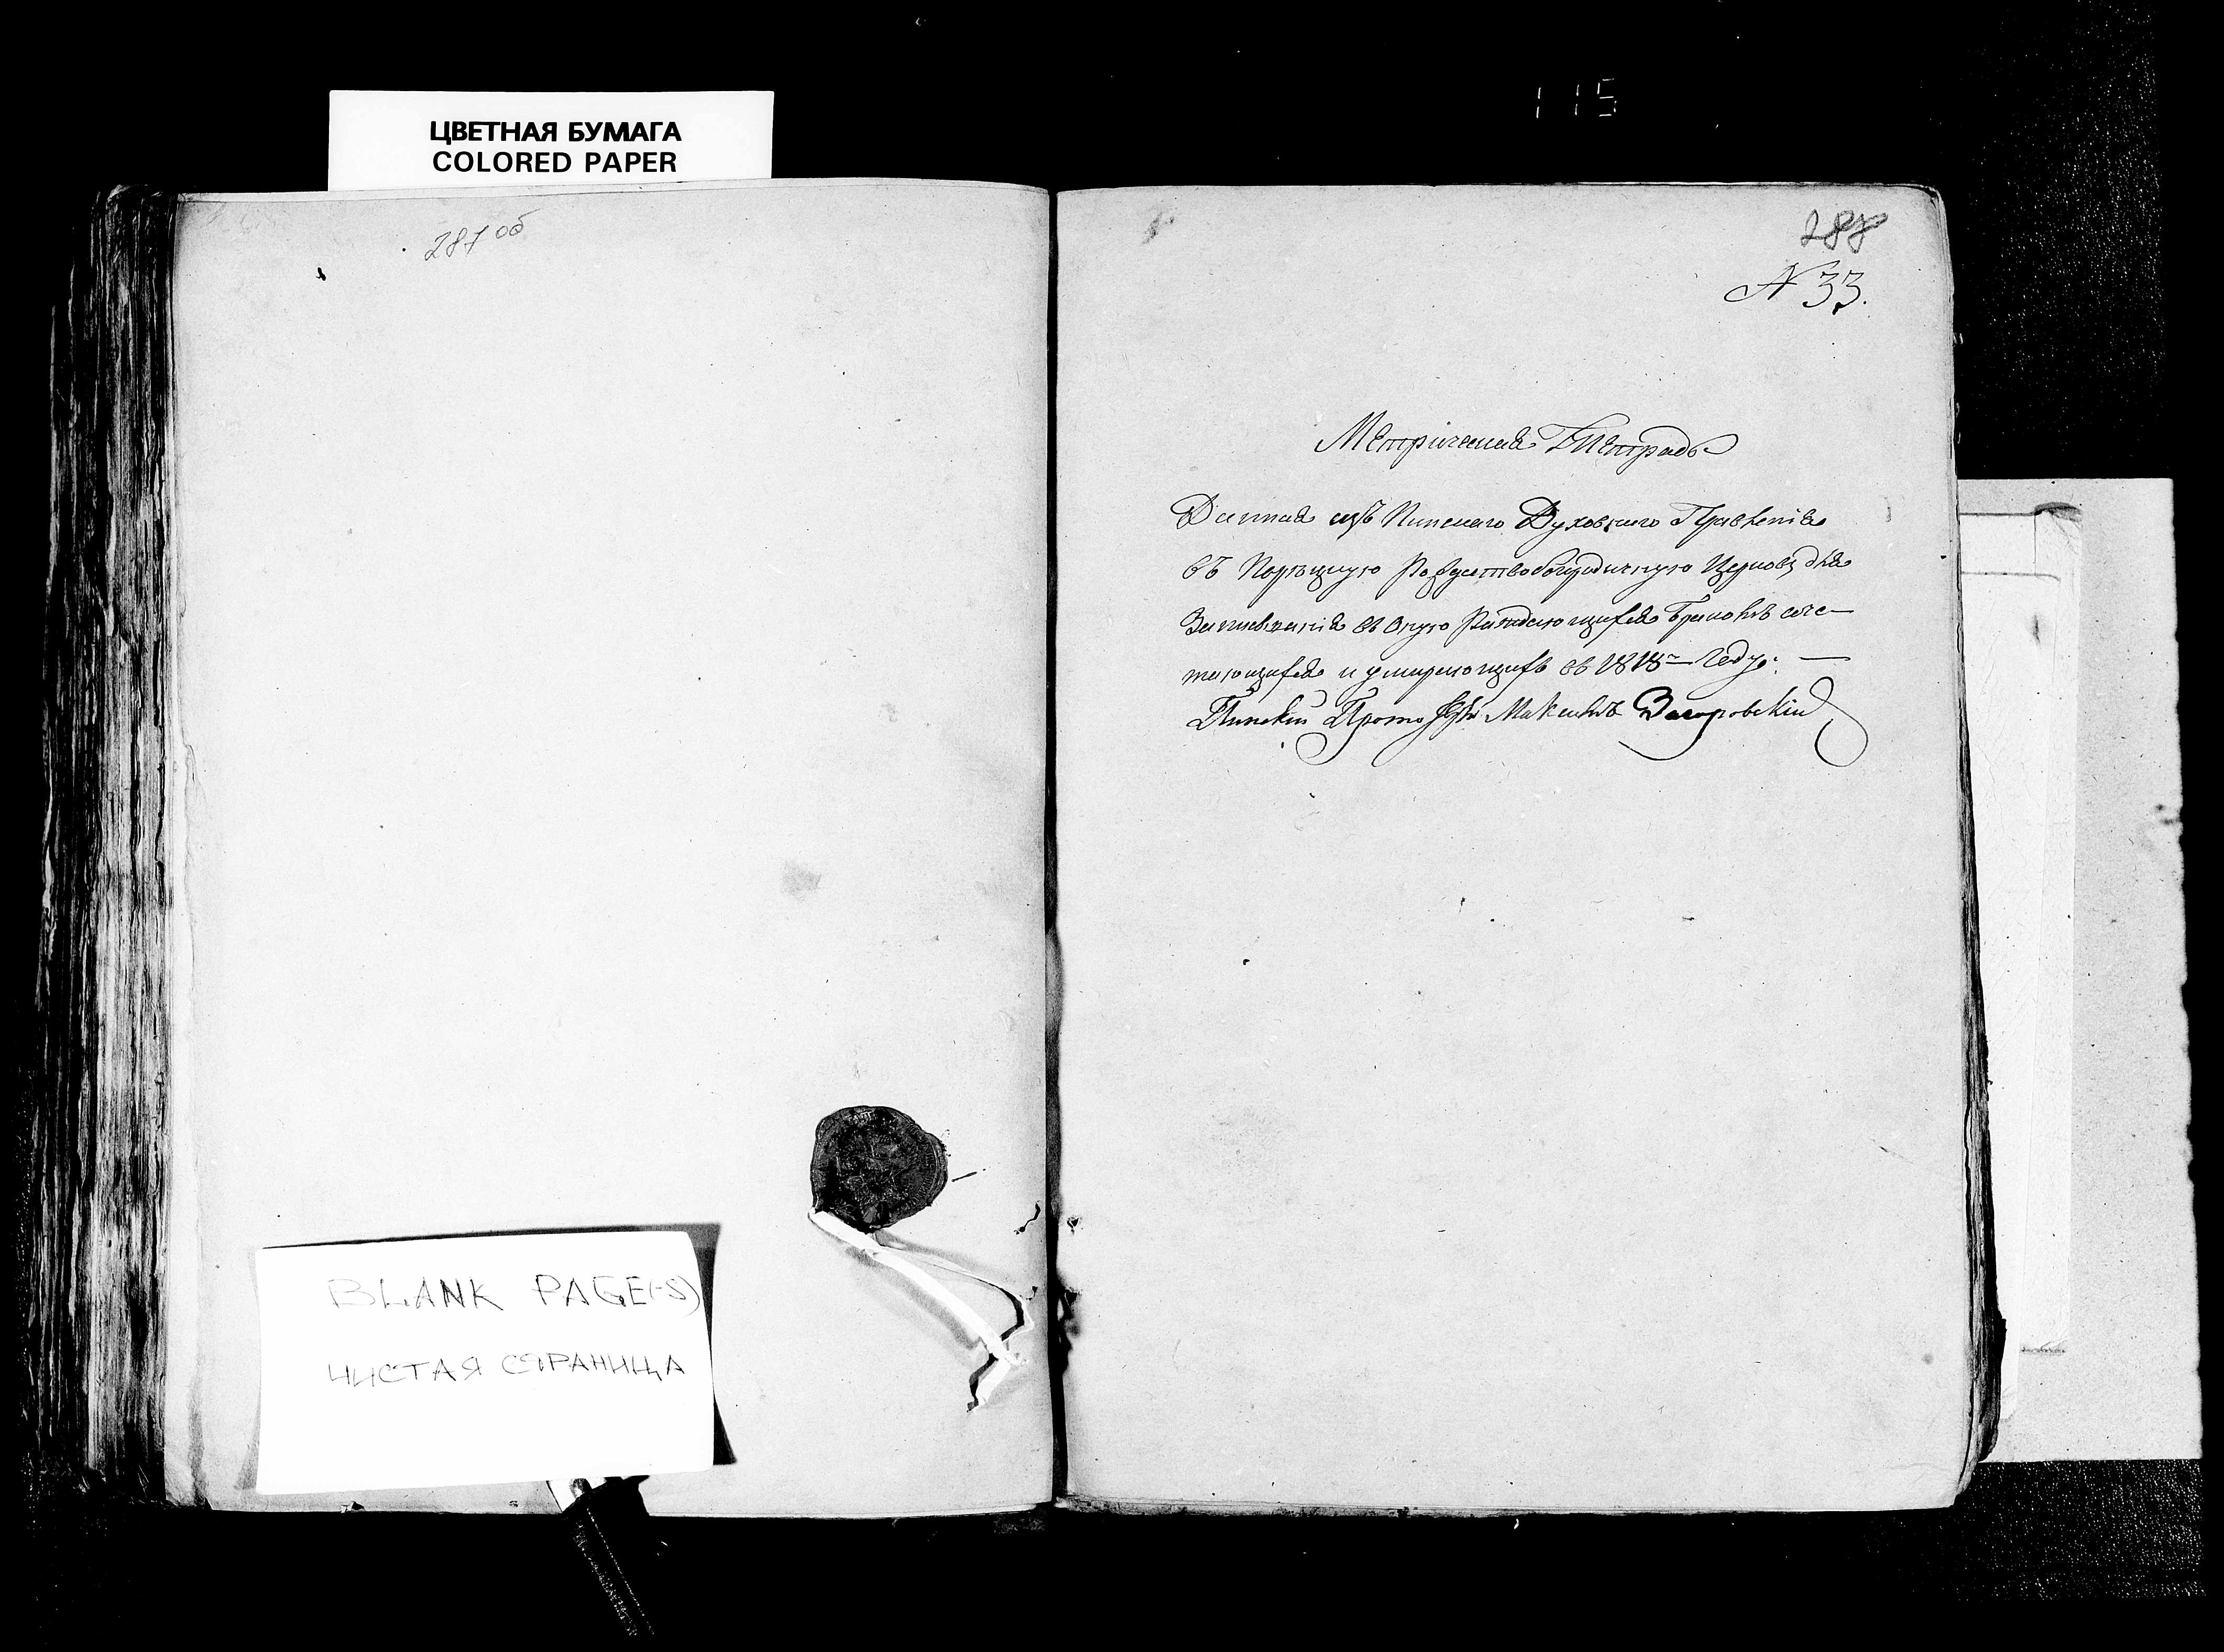 115
ЦВЕТНАЯ БУМАГА
COLORED PAPER
287 об
288
N 33.
Метрическая Тетрадь
Данная изъ Пинскаго Духовнаго Правленія
въ Порѣцкую Рождествобогородичную Церковь для
Записыванія въ оную Раждающихся Бракомъ соче-
тающихся и умирающихъ въ 1818м Году: —
Пинскій Прото Максимъ Загоровскій
BLANK PAGE(-S)
ЧИСТАЯ СТРАНИЦА